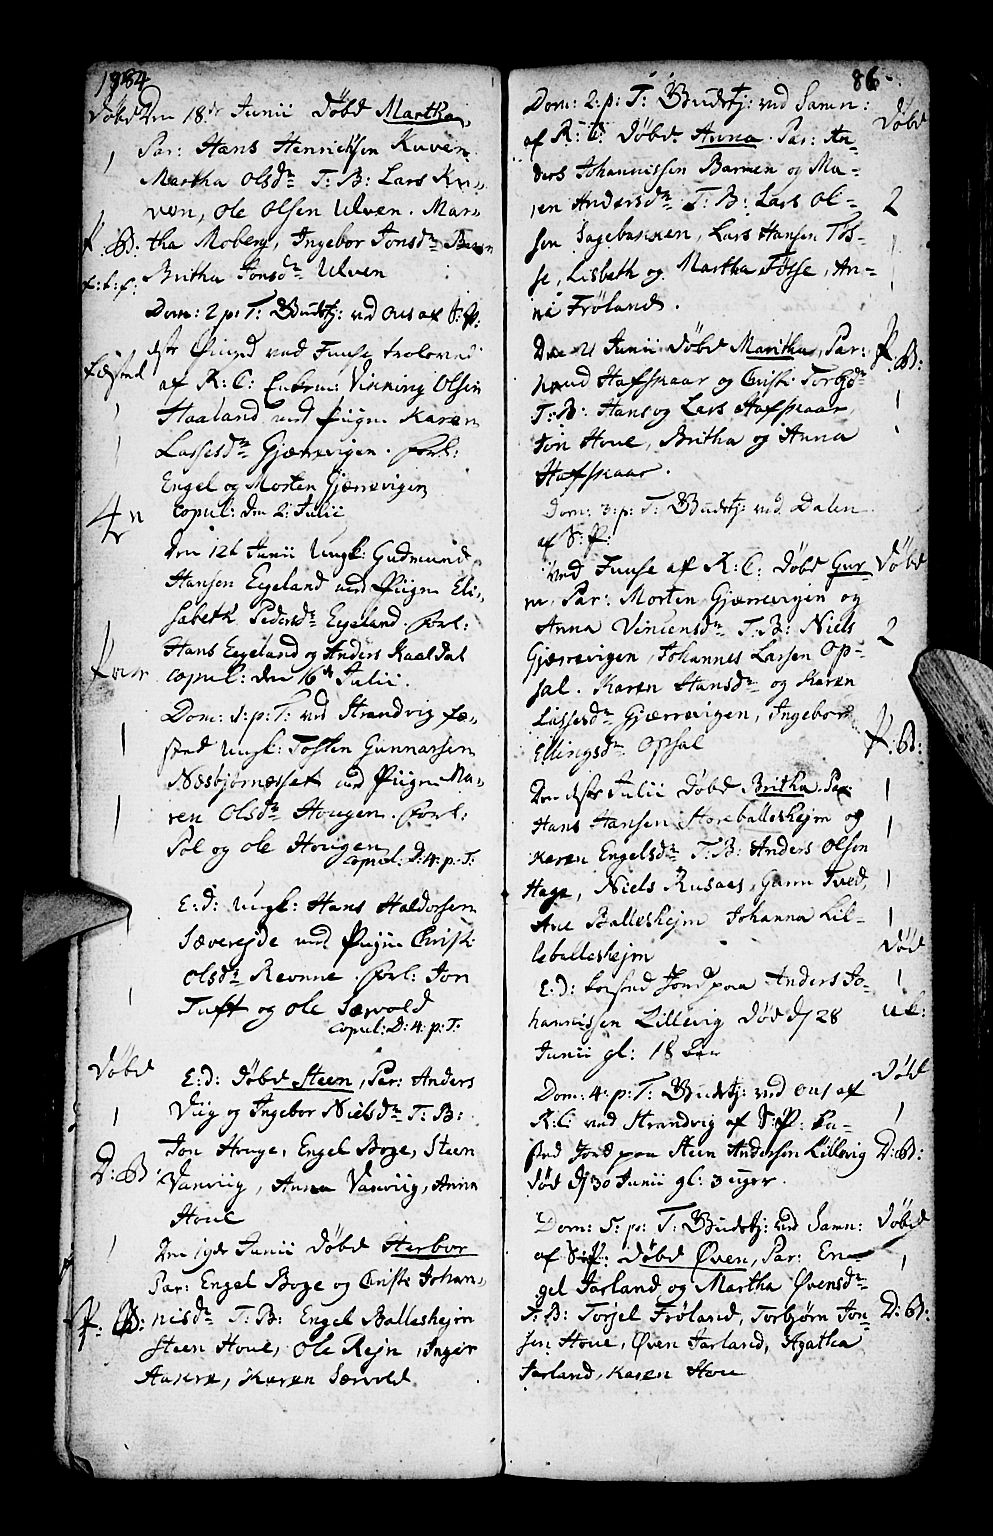 1784
Døbd Den 18de Junii Døbd Martha,
1 Par: Hans Henrichsen Kuven
Martha Olsdr T: B: Lars Ku-
ven, Ole Olsen Ulven. Mar-
P. B: tha Moberg, Ingebor Jonsdr
Britha Jonsdr Ulven
Dom: 2 p: T: Gudstj: ved Ous af S: P:
ved Fuuse trolovede
Fæsted
af R: C: Olsen
Haaland ved Piigen Karen
Lassesdr Gjærrevigen. Forl:
Engel og Morten Gjærrevigen
copul: den 2: Julii
den 12t Junii Ungk: Gudmund
Hansen Eegeland ved Piigen Eli-
sabeth Pedersdr Eegeland. Forl:
Hans Eegeland og Anders Kaaldal
copul: den 16de Julii.
Dom: 1: p: T: ved Strandvig fæ-
sted Ungk: Tosten Gunnarsen
Næsbjørnæsset ved Piigen Ma-
ren Olsdr Hougen. Forl:
Pol og Ole Hougen
copul: D: 4: p: T:
E: d: Ungk: Hans Haldorsen
Sævereide ved Piigen Christi:
Olsdr Revnne. Forl: Jon
Tufft og Ole Særvold
copul: D: 4: p: T:
Døbd
E: d: Døbd Steen, Par: Anders
1 Viig og Ingebor Nielsdr T: B:
Jon Houge, Engel Boge, Steen
D: B: Vanviig, Anna Vanviig, Anna
Houe
1 Den 19de Junii Døbd Herbor
Par: Engel Boge og Christi Johan-
P: B: nisdr T: B: Engel Ballesheim
Steen Houe, Ole Rejn, Inger
Aasere, Karen Særvold.
86
Dom: 2: p: T: Gudstj: ved Samn:
Døbd
af R: C: Døbt Anna. Par: An-
ders Johannissen Barmen og Ma-
ren Andersdr T: B: Lars Ol- 2
sen Sagebakken, Lars Hansen Tøs-
se, Lisbeth og Martha Tøsse, An-
na Frøland.
Den 21 Junii Døbd Maritha, Par: P. B:
Knud Hafskaar og Christi: Torbsdr
T: B: Hans og Lars Hafskaar 1
Jon Houe, Britha og Anna
Hafskaar.
Dom: 3: p: T: Gudstj: ved Dalen
af S: P:
ved Fuuse af R: C: Døbd Gur Døbd
m, Par: Morten Gjærrevigen og
Anna Vincensdr T: B: Niels 2
Gjærrevigen, Johannes Lassen Op-
sal. Karen Hansdr og Karen
Lassesdr Gjærrevigen, Ingebor
Ellingsdr Opsal P: B:
Den 1ste Julii Døbd Britha Par: 1
Hans Hansen Storeballesheim og 1
Karen Engelsdr T: B: Anders Olsen
Hage, Niels Rusaas, Gunn Tved, 1
Ane Ballesheim Johanna Lil- 1
leballesheim
Død
E: d: kasted Jord paa Anders Jo- 1
hannissen Lillevig død d/ 28
Junii gl: 18 Aar
Død
Dom: 4: p: T: Gudstj: ved Ous af
R: C: ved Strandvig af S: P: ka- 1
sted Jord paa Steen Andersen Lillevig D: B:
død d/ 30 Junii gl: 3 uger.
Dom: 5: p: T: Gudstj: ved Samn: Døbd
af S: P: Døbd Øven, Par: En- 1
gel Jarland og Martha Øvensdr
T: B: Torjel Frøland, Torbjørn Jon- D: B:
sen Houe, Øven Jarland, Agatha
Jarland, Karen Houe